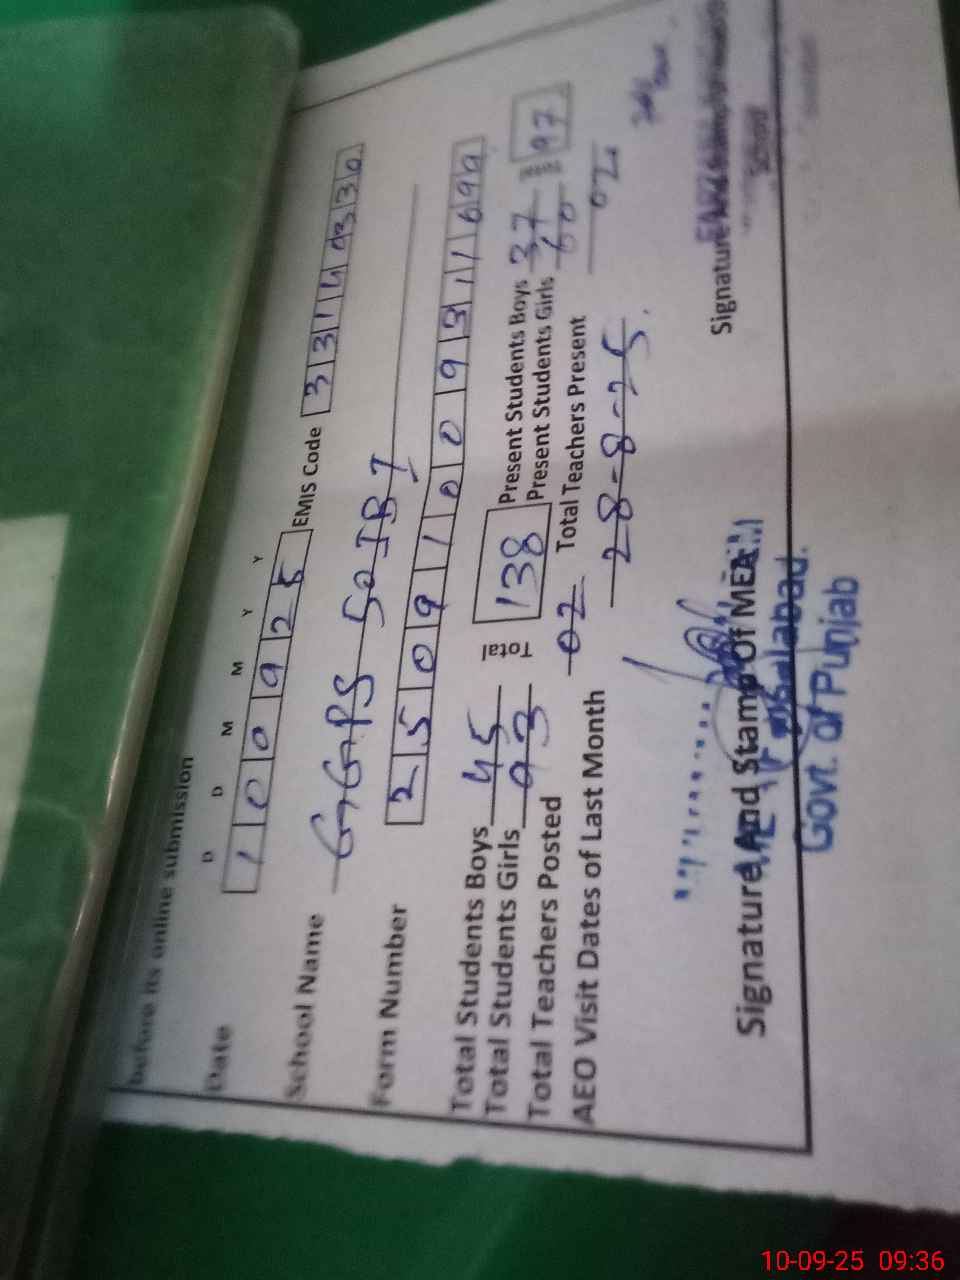 before its online submission
D D M M Y Y
Date 1 0 0 9 2 5 EMIS Code 3 3 1 4 0 3 3 0
School Name GGPS 50 JB 1
Form Number 2 5 0 9 1 0 0 9 3 1 1 6 9 9
Total Students Boys 45 Total 138 Present Students Boys 37 97
Total Students Girls 93 Present Students Girls 60
Total Teachers Posted 02 Total Teachers Present 02
AEO Visit Dates of Last Month 28-8-25.
Signature And Stamp Of MEA Signature
Govt. of Punjab
10-09-25 09:36